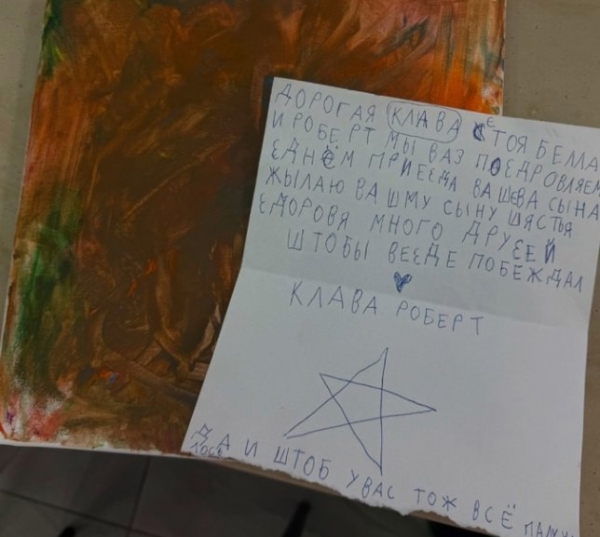 ДОРОГАЯ КЛАВА СТОЯ БЕЛЛА
И РОБЕРТ МЫ ВАЗ ПОЕДРОВЛЯЕМ
ЕДНЁМ ПРИЕЕДА ВАШЕВА СЫНА
ЖЫЛАЮ ВАШМУ СЫНУ ШЯСТЬЯ
ЕДОРОВЯ МНОГО ДРУЕЕЙ
ШТОБЫ ВЕЕДЕ ПОБЕЖДАЛ
КЛАВА РОБЕРТ
ДА И ШТОБ УВАС ТОЖ ВСЁ